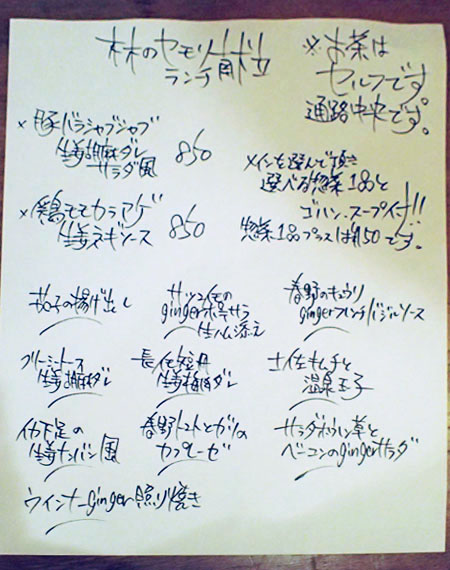 ランチ
※お茶は
セルフです
通路中央です。
×豚バラシャブシャブ
生姜胡麻ダレ
サラダ風
850
メインを選んで頂き
選べる惣菜1品と
ゴハン、スープ付!!
惣菜1品プラスは150です。
×鶏モモカラアゲ
生姜ネギソース
850
茄子の揚げ出し
サツマイモの
gingerポテサラ
生ハム添え
春野のキュウリ
gingerフレンチバジルソース
グリーンリーフ
生姜胡麻ダレ
長イモ短冊
生姜梅肉ダレ
土佐キムチと
温泉玉子
イカ下足の
生姜ナンバン風
春野トマトとガリの
カプレーゼ
サラダホウレン草と
ベーコンのgingerサラダ
ウインナーginger照り焼き